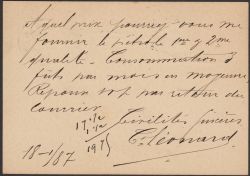 A quel prix pourrez-vous me
fournir le pétrole 1re & 2me
qualité - Consommation 3
fûts par mois en moyenne
Réponse svp par retour du
courrier
Civilités sincères
C. Léonard
18-1/87